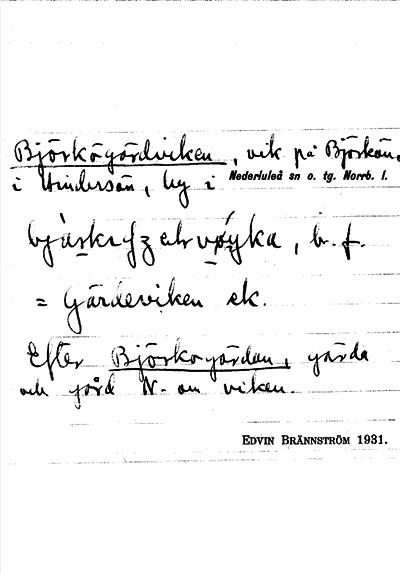 Björkögärdviken, vik på Björkön,
i Hindersön, by i Nederluleå sn o. tg. Norrb. l.
b. f.
= Gärdeviken ek.
Efter Björkogärdan, gärda
och jord N. om viken.
EDVIN BRÄNNSTRÖM 1931.